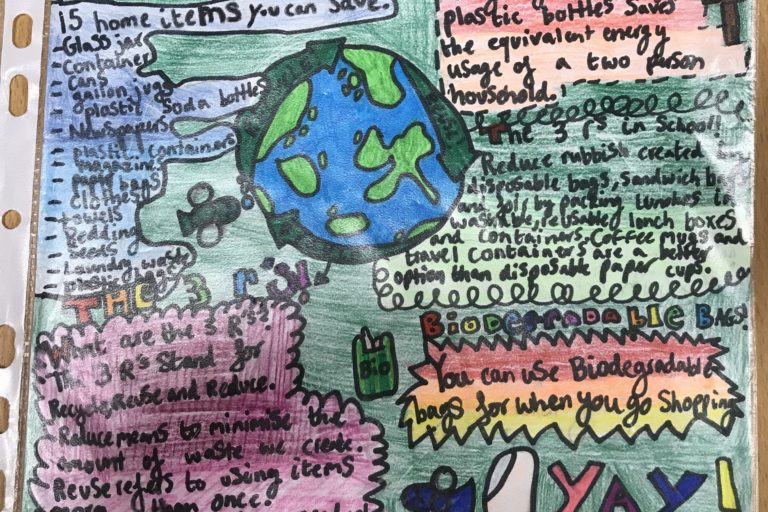 15 home items you can save.
-Glass jar
-Container
- Cans
- gallon jugs
- plastic Soda bottles
- Newspapers
- plastic containers
- magazine
- bags
- Clothes
- towels
- Bedding
- Seeds
- Laundry waste
plastic bottles saves
the equivalent energy
usage of a two person
household.
The 3 r's in School!
Reduce rubbish created by
disposable bags, Sandwich
and foil by packing lunches in
washable, reusable lunch boxes
and containers. Coffee mugs and
travel containers are a better
option than disposable paper cups.
THE 3 r's!
What are the 3 R's?
The 3 R's Stand for
Recycle, Reuse and Reduce.
Reduce means to minimise the
amount of waste we create.
Reuse refers to using items
more than once.
BIO
BIODEGRADABLE BAGS!
You can use Biodegradable
bags for when you go Shopping
YAY!